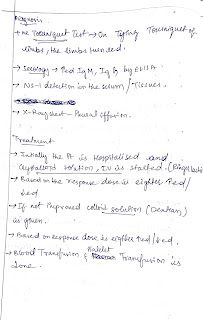 Diagnosis
+ve Tourniquet Test → On Tying Tourniquet of
limbs, the limbs turn red.
→ Serology → ↑ed IgM, IgG by ELISA
→ NS-1 detection in the serum / Tissues.
→ X-Ray chest → Pleural effusion.
Treatment
→ Initially the Pt is Hospitalised and
crystalloid solution, IV is started. (Ringer lactate)
→ Based on the response dose is eighter ↑ed /
↓ed
→ If not improved colloid solution (Dextran)
is given.
→ Based on response dose is eighter ↑ed / ↓ed.
→ Blood Transfusion & Platelet Transfusion is
done.